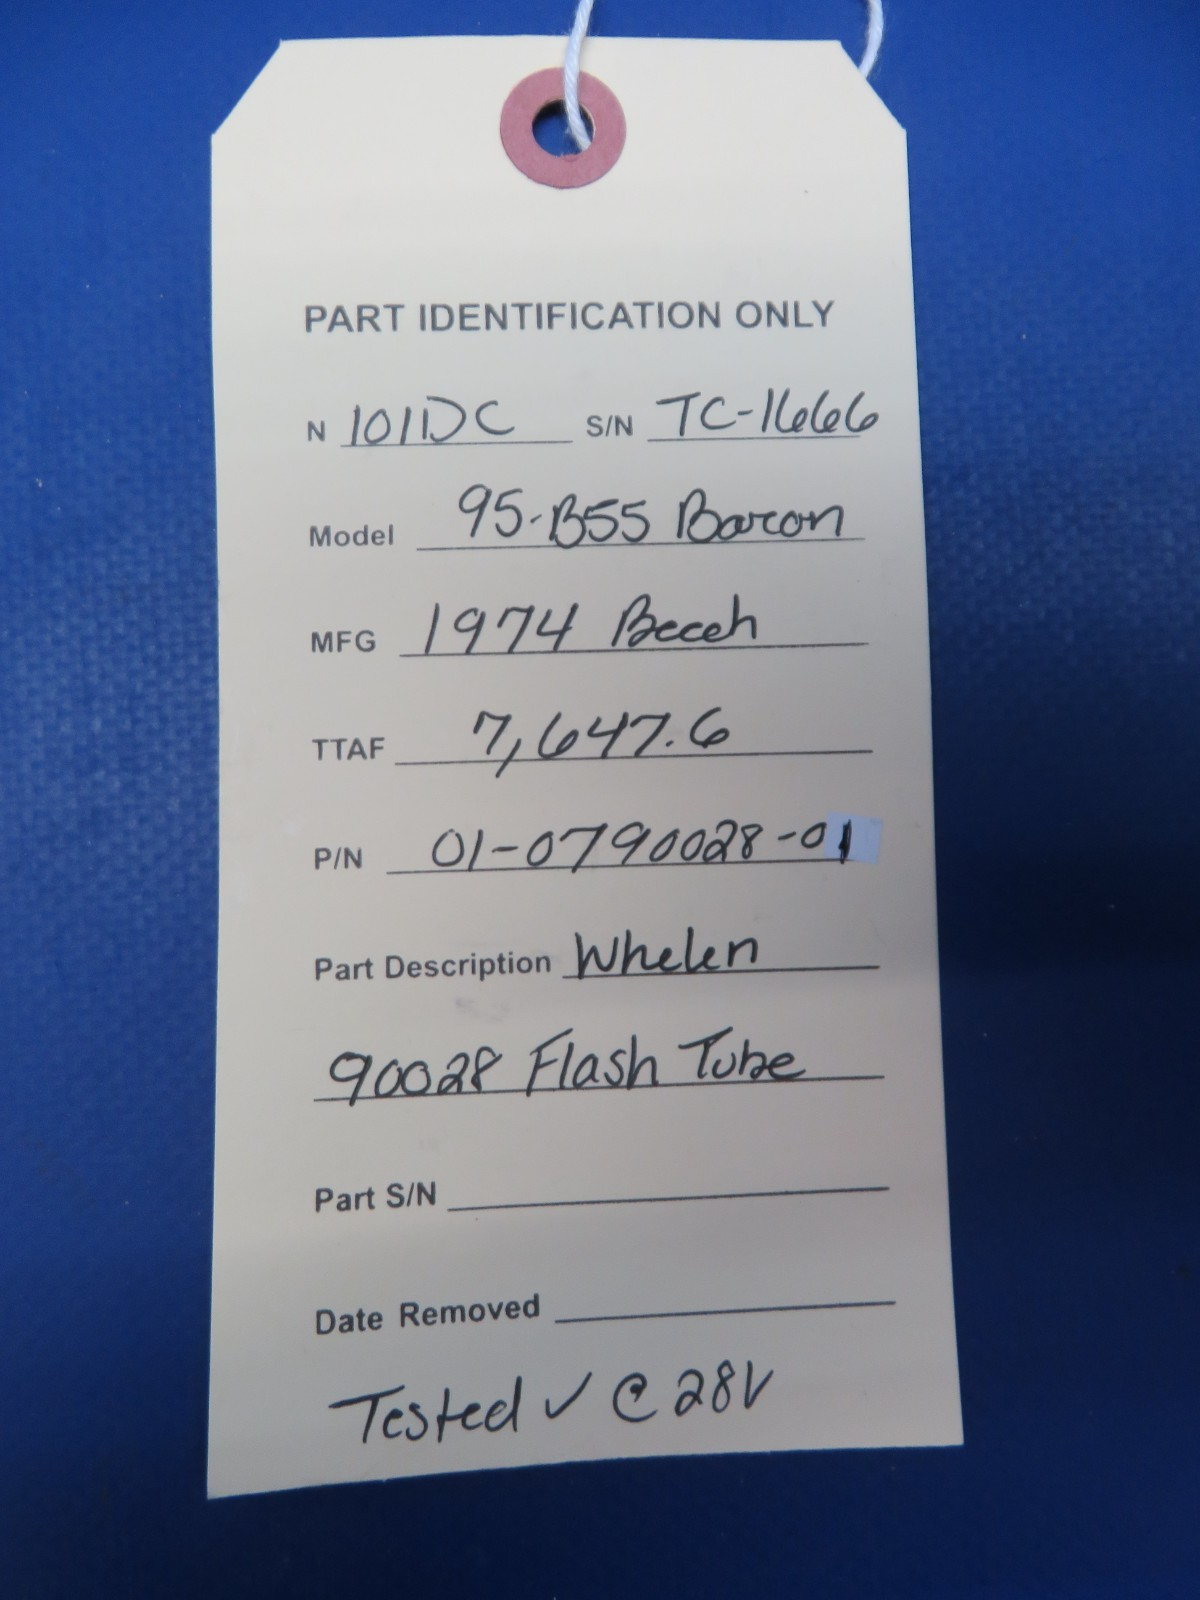 PART IDENTIFICATION ONLY
N 101DC S/N TC-1666
Model 95-B55 Baron
MFG 1974 Beech
TTAF 7,647.6
P/N 01-0790028-01
Part Description Whelen
90028 Flash Tube
Part S/N
Date Removed
Tested ✓ @ 28V